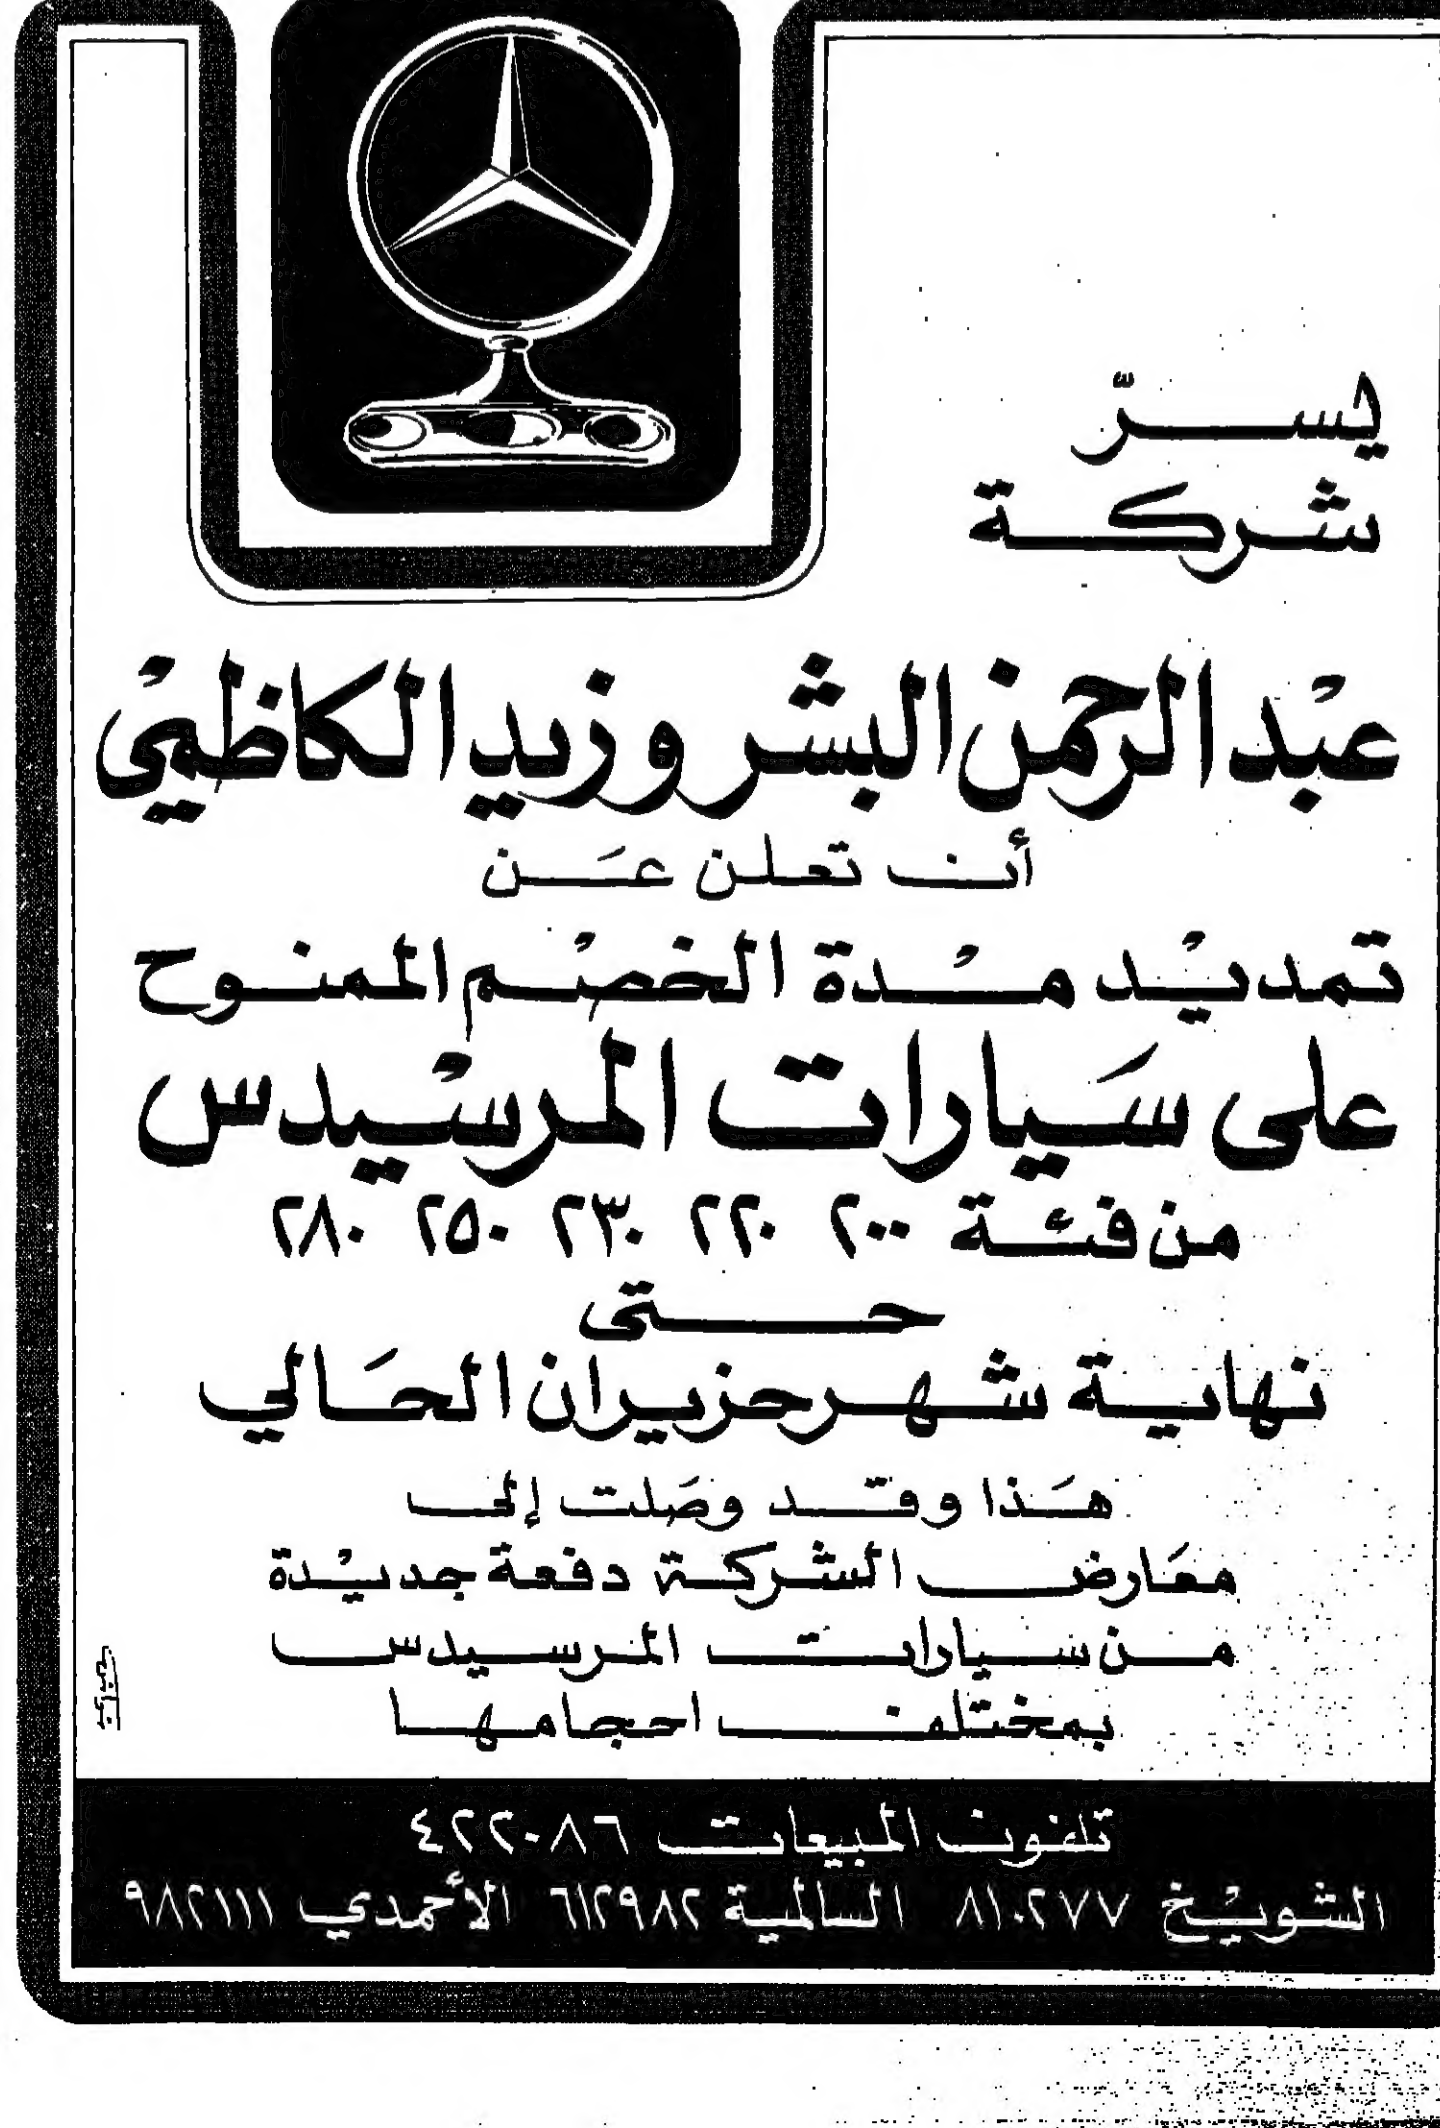 يسرّ
شركة
عبد الرحمن البشر وزيد الكاظمي
أن تعلن عَن
تمديد مدة الخصم الممنوح
على سَيارات المرسيدس
من فئة ٢٠٠ ٢٢٠ ٢٣٠ ٢٥٠ ٢٨٠
حتى
نهاية شهر حزيران الحَالي
هَذا وقد وصَلت إلى
معَارض الشركة دفعة جديدة
من سيارات المرسيدس
بمختلف احجامها
تلفون المبيعات ٤٢٢٠٨٦
الشويخ ٨١٠٢٧٧ السالمية ٦١٢٩٨٢ الأحمدي ٩٨٢١١١